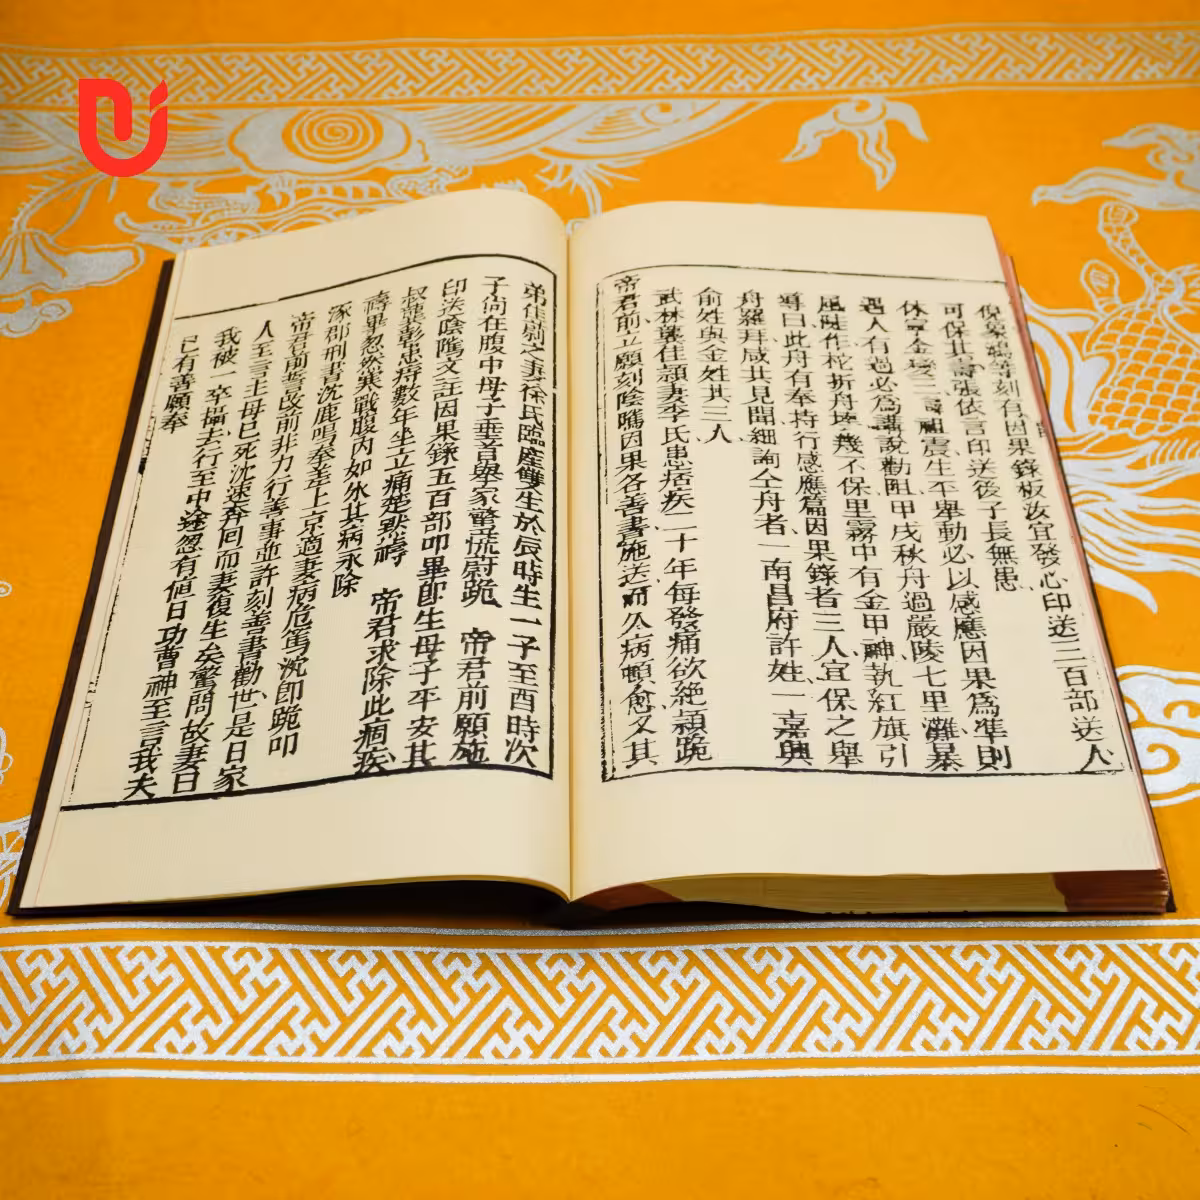 倪象鵷等刻有因果錄板汝宜發心印送三百部送人
可保其壽張依言印送後子長無患
休寧金缓三諱祖震生平舉動必以感應因果為準則
遇人有過必為講說勸阻甲戌秋舟過嚴陵七里灘暴
風陡作柁折舟壞幾不保里霧中有金甲神執紅旗引
導曰此舟有奉持行感應篇因果錄者三人宜保之舉
舟羅拜咸共見聞細詢仝舟者一南昌府許姓一嘉興
俞姓與金姓共三人
武林襲佳頴妻李氏患痞疾二十年每發痛欲絶頴跪
帝君前立願刻陰隲因果各善書施送而公病頓愈又其
弟佳尉之妻徐氏臨產雙生於辰時生一子至酉時次
子尚在腹中母子垂音舉家驚慌蔚跪 帝君前願施
印送陰隲文註因果錄五百部叩畢即生母子平安其
叔龔彰患痔數年坐立痛楚默禱 帝君求除此痼疾
禱畢忽然寒戰腹內如氷其病永除
涿郡刑書沈鹿鳴奉差上京適妻病危篤沈卽跪叩
帝君前誓改前非力行善事並許刻善書勸世是日家
人至言主母已死沈速奔回而妻復生矣驚問故妻曰
我被一卒攝去行至中途忽有値日功曹神至言我夫
已有善願奉